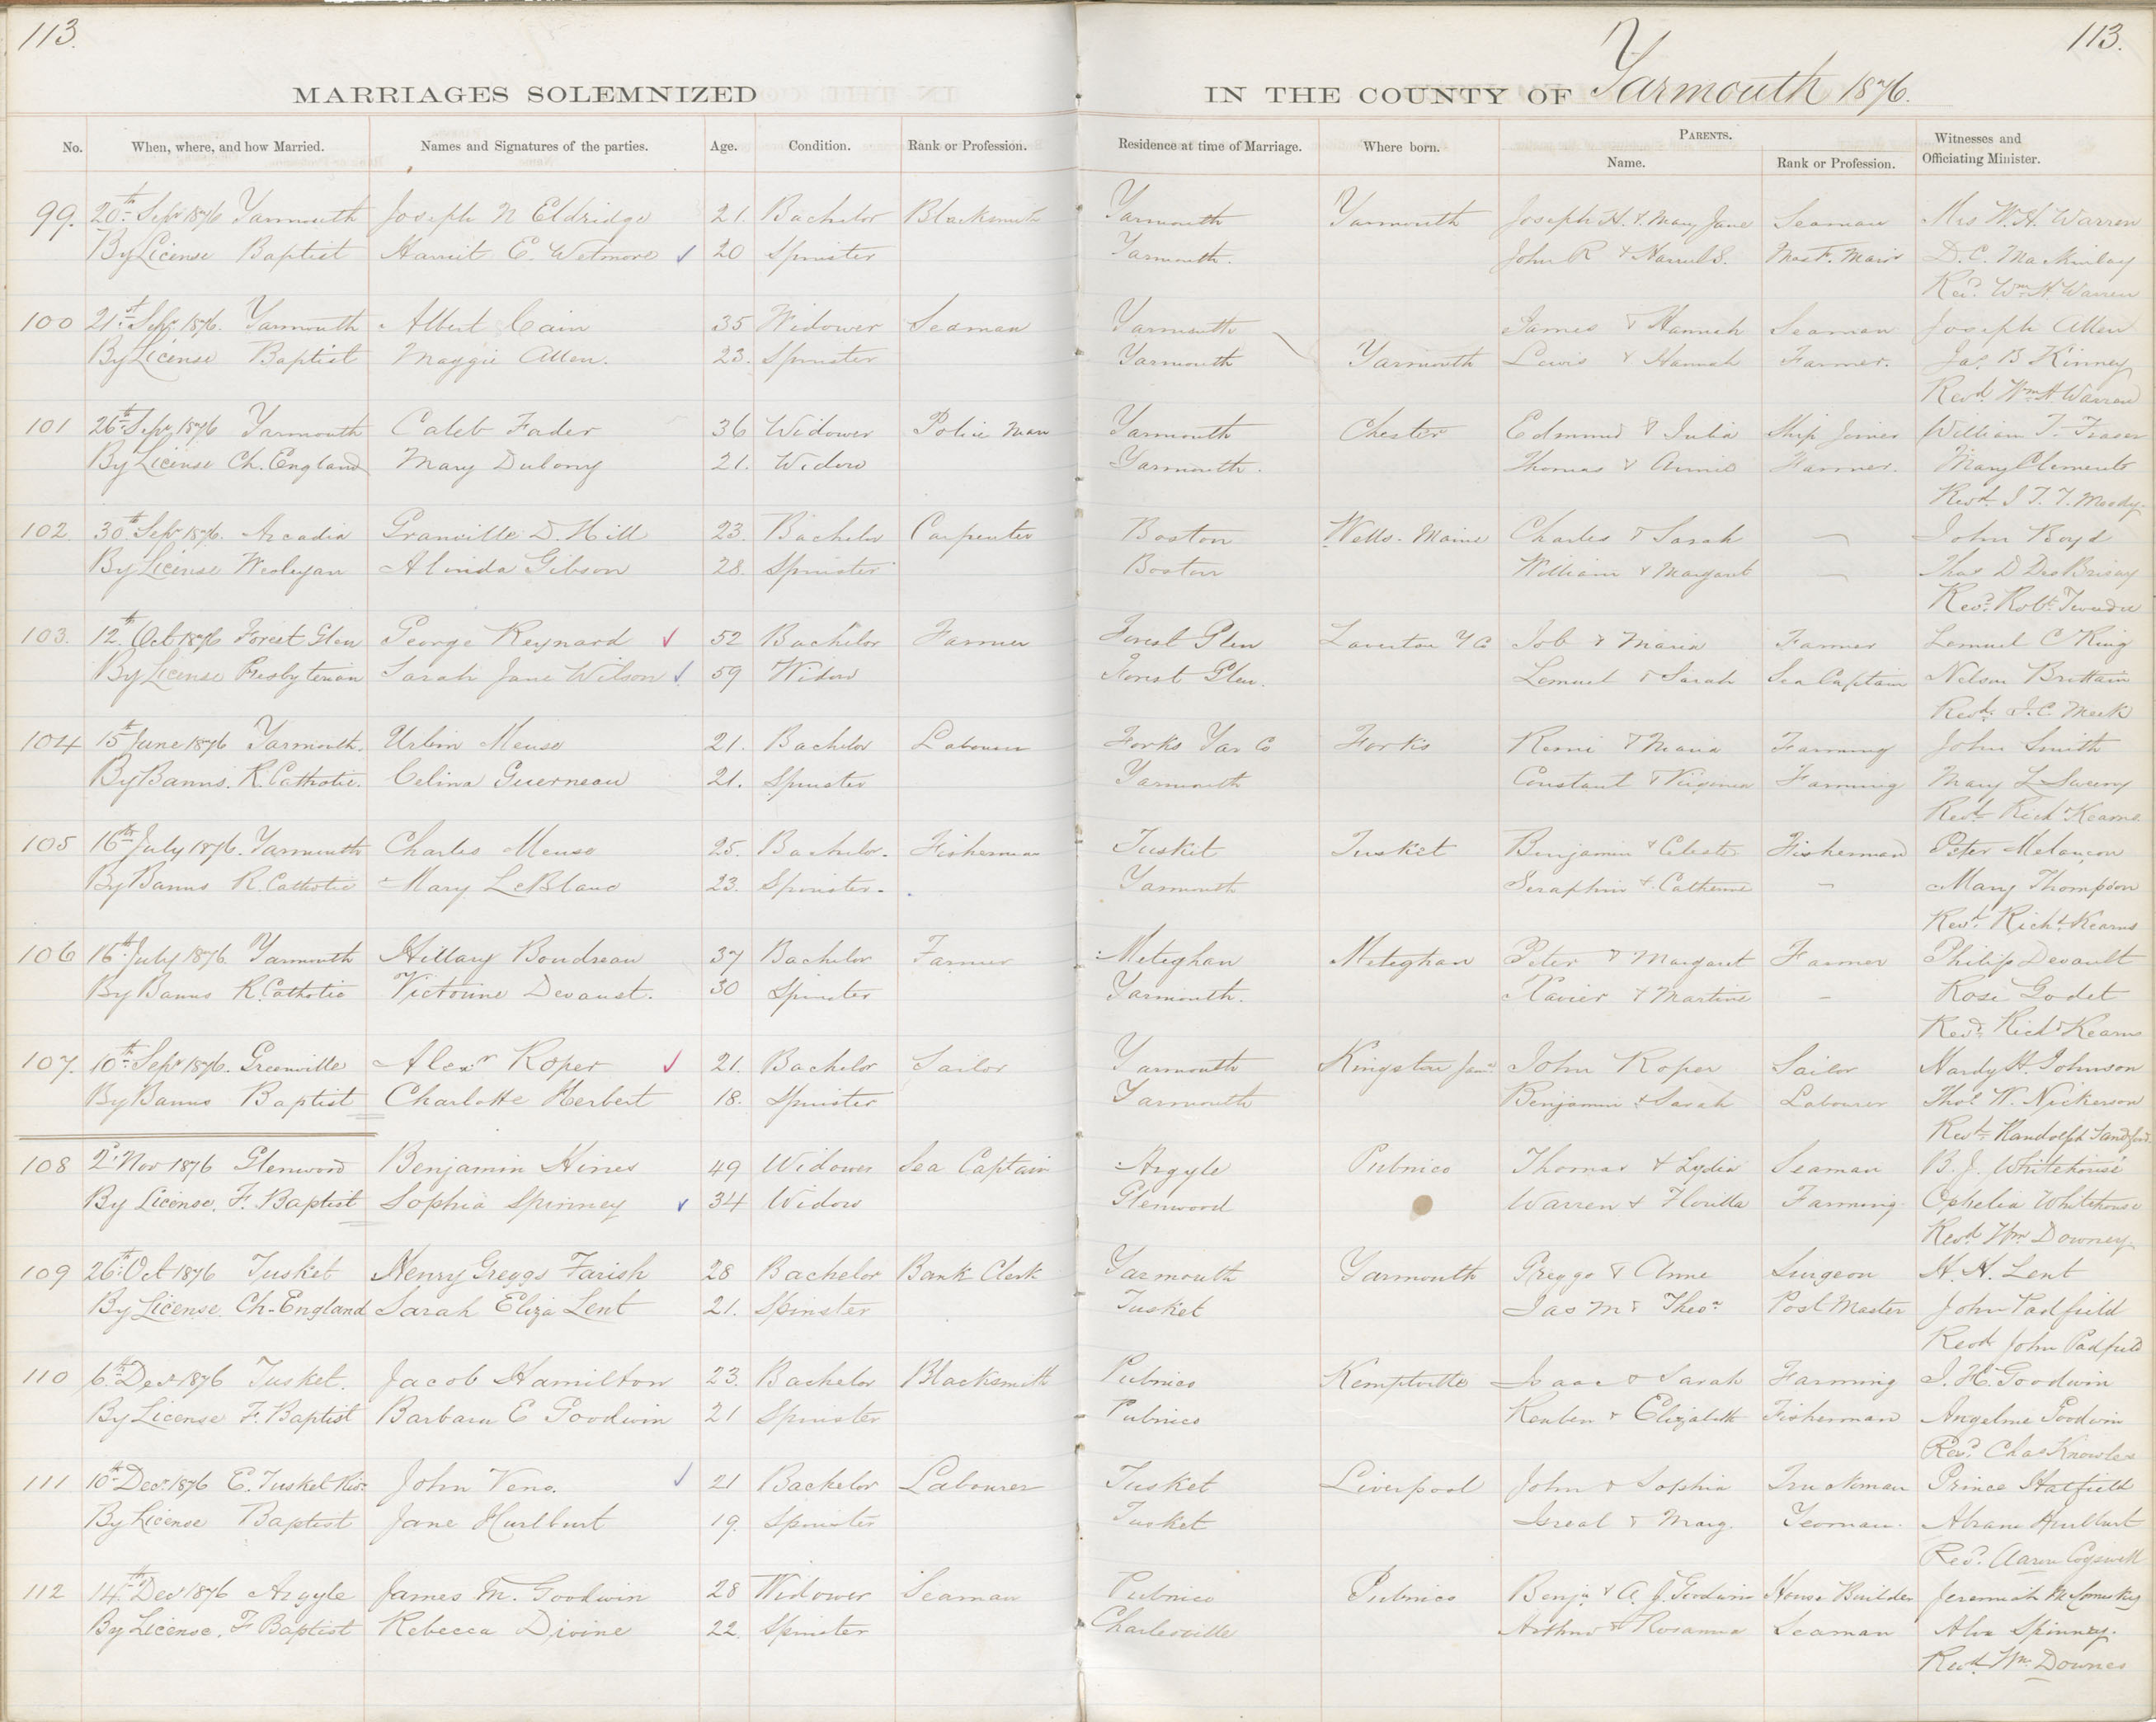 113. 113.
MARRIAGES SOLEMNIZED IN THE COUNTY OF Yarmouth 1876.
No. When, where, and how Married. Names and Signatures of the parties. Age. Condition. Rank or Profession. Residence at time of Marriage. Where born. PARENTS. Name. Rank or Profession. Witnesses and Officiating Minister.
99. 20th Sepr 1876 Yarmouth Joseph N Eldridge 21. Bachelor Blacksmith Yarmouth Yarmouth Joseph H. & Mary Jane Seaman Mrs W. H. Warren
By License Baptist Harriet E. Wetmore 20 Spinster Yarmouth. John R & Harriet S. D. C. MacKinlay
Revd. Wm H. Warren
100 21st Sepr 1876. Yarmouth Albert Cain 35 Widower Seaman Yarmouth James & Hannah Seaman Joseph Allen
By License Baptist Maggie Allen. 23. Spinster Yarmouth Yarmouth Lewis & Hannah Farmer. Jas. B Kinney
Revd. Wm H Warren
101 26th Sepr 1876 Yarmouth Caleb Fader 36 Widower Police Man Yarmouth Chester Edmund & Julia Ship Joiner William T. Fraser
By License Ch. England Mary 21. Widow Yarmouth. Thomas & Annie Farmer. Mary Clements
Revd. J T. T. Moody.
102. 30th Sepr 1876. Arcadia Granville D. Hill 23. Bachelor Carpenter Boston Wells. Maine Charles & Sarah — John Boyd
By License Wesleyan Alinda Gibson 28. Spinster Boston William & Margaret — Thos D DesBrisay
Revd. Robt. Tweedie
103. 12th Oct 1876 Forest Glen George Reynard 52 Bachelor Farmer Forest Glen Y Co Job & Maria Farmer Lemuel C King
By License Presbyterian Sarah Jane Wilson 59 Widow Forest Glen. Lemuel & Sarah Sea Captain Nelson Brittain
Revd. J. C. Meek
104 15th June 1876 Yarmouth. Urbin Meuse 21. Bachelor Labourer Forks Yar Co Forks Remi & Maria Farming John Smith
By Banns. R. Catholic. Celina Guerneau 21. Spinster Yarmouth Constant & Virginia Farming Mary L Sweeny
Revd. Richd Kearns
105 16th July 1876. Yarmouth Charles Meuse 25. Bachelor. Fisherman Tusket Tusket Benjamin & Celeste Fisherman Peter Melançon
By Banns R. Catholic Mary LeBlanc 23. Spinster. Yarmouth Seraphin & Catherine — Mary Thompson
Revd. Richd. Kearns
106 16th July 1876. Yarmouth Hillary Boudreau 37 Bachelor Farmer Meteghan Meteghan Peter & Margaret Farmer Philip Devault
By Banns R. Catholic Victorine Devaust. 30 Spinster Yarmouth. Xavier & Martine — Rose Godet
Revd. Richd Kearns
107. 10th Sepr 1876. Greenville Alexr Roper 21. Bachelor Sailor Yarmouth Kingston Jama John Roper Sailor Hardy H. Johnson
By Banns Baptist Charlotte Herbert 18. Spinster Yarmouth Benjamin & Sarah Labourer Thos W. Nickerson
Revd. Randolph Sandford
108 2d Nov 1876 Glenwood Benjamin Hines 49 Widower Sea Captain Argyle Pubnico Thomas & Lydia Seaman B. J. Whitehouse
By License, F. Baptist Sophia Spinney 34 Widow Glenwood Warren & Florilla Farming Ophelia Whitehouse
Revd. Wm Downey
109 26th Oct 1876 Tusket Henry Greggs Farish 28 Bachelor Bank Clerk Yarmouth Yarmouth Greggs & Anne Surgeon H. H. Lent
By License Ch. England Sarah Eliza Lent 21. Spinster Tusket Jas M & Theoa Post Master John Padfield
Revd. John Padfield
110 6th Decr 1876 Tusket. Jacob Hamilton 23. Bachelor Blacksmith Pubnico Kemptville Isaac & Sarah Farming J. H. Goodwin
By License F. Baptist Barbara E Goodwin 21 Spinster Pubnico Reuben & Elizabeth Fisherman Angeline Goodwin
Revd. Chas Knowles
111 10th Decr 1876 E. Tusket Rivr John Veno. 21 Bachelor Labourer Tusket Liverpool John & Sophia Truckman Prince Hatfield
By License Baptist Jane Hurlburt 19. Spinster Tusket Isreal & Marg. Yeoman. Abram Hurlburt
Revd. Aaron Cogswell
112 14th Decr 1876 Argyle James M. Goodwin 28 Widower Seaman Pubnico Pubnico Benj. & A. J. Goodwin House Builder Jeremiah
By License, F Baptist Rebecca Divine 22. Spinster Charlesville Arthur & Rosanna Seaman Spinney.
Revd. Wm. Downes